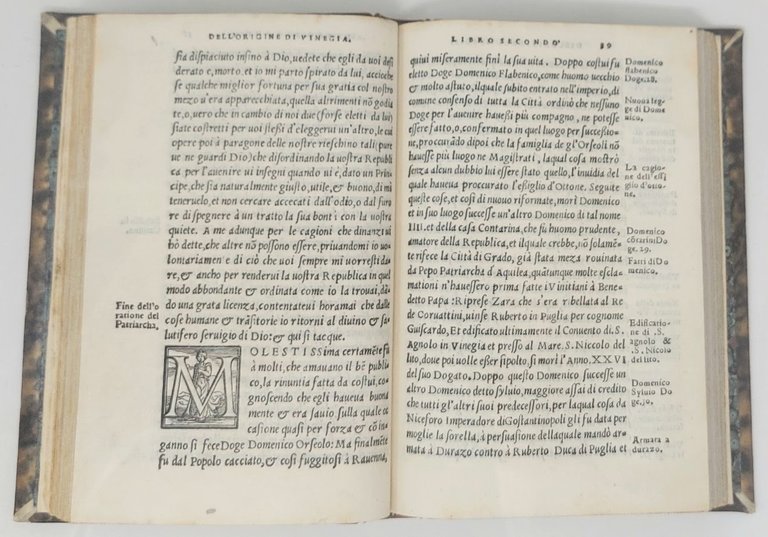 DELL'ORIGINE DI VINEGIA.
sia dispiaciuto insino à Dio, uedete che egli da uoi desi
derato e, morto, et io mi parto spirato da lui, accioche
se qualche miglior fortuna per sua gratia col nostro
mezo u'era apparecchiata, quella altrimenti nõ godia
te, o, uero che in cambio di noi due (forse eletti da lui)
siate costretti per uoi stessi d'eleggerui un'altro, le cui
opere poi à paragone delle nostre rieschino tali (pur
ue ne guardi Dio) che disordinando la uostra Republi
ca per l'auenire ui insegni quando ui è, dato un Prin
cipe, che sia naturalmente giusto, utile, & buono, di mã
teneruelo, et non cercare accecati dall'odio, o dal furo
re di spegnere à un tratto la sua bontà con la uostra
quiete. A me adunque per le cagioni che dinanzi ui
hò dette, che altre nõ possono essere, priuandomi io uo
lontariamente di ciò che uoi sempre mi uorresti da
re, & ancho per renderui la uostra Republica in quel
modo abbondante & ordinata come io la trouai, dã
do una grata licenza, contentateui horamai che dalle
cose humane & trãsitorie io ritorni al diuino & sa
lutifero seruigio di Dio: & qui si tacque.
Fine dell'o
ratione del
Patriarcha.
MOLESTISSima certamẽte fu
à molti, che amauano il bẽ publi
co, la rinuntia fatta da costui, co
gnoscendo che egli haueua buona
mente & era sauio sulla quale oc
casione quasi per forza & con in
ganno si fece Doge Domenico Orseolo: Ma finalmẽte
fu dal Popolo cacciato, & cosi fuggitosi à Rauenna,
LIBRO SECONDO 39
quiui miseramente finì la sua uita. Doppo costui fu
eletto Doge Domenico Flabenico, come huomo uecchio
& molto astuto, ilquale subito entrato nell'imperio, di
comune consenso di tutta la Città ordinò che nessuno
Doge per l'auenire hauessi più compagno, ne potesse
essere fatto, o, confermato in quel luogo per successio-
ne, procurãdo dipoi che la famiglia de gl'Orseoli nõ
hauesse più luogo ne Magistrati, laqual cosa mostrò
senza alcun dubbio lui essere stato quello, l'inuidia del
quale haueua procurato l'esiglio d'Ottone. Seguite
queste cose, et cosi di nuouo riformate, morì Domenico
et in suo luogo successe un'altro Domenico di tal nome
IIII. et della casa Contarina, che fù huomo prudente,
amatore della Republica, et ilquale crebbe, nõ solamẽ-
te rifece la Città di Grado, già stata meza rouinata
da Pepo Patriarcha d'Aquilea, quãtunque molte escla-
mationi n'hauessero prima fatte i Vinitiani à Bene-
detto Papa: Riprese Zara che s'era ribellata al Re
de Coruattini, uinse Ruberto in Puglia per cognome
Guiscardo, Et edificato ultimamente il Conuento di .S.
Agnolo in Vinegia et presso al Mare .S. Niccolo del
lito, doue poi uolle esser sipolto, si morì l'Anno .XXVI
del suo Dogato. Doppo questo Domenico successe un
altro Domenico detto syluio, maggiore assai di credito
che tutti gl'altri suoi predecessori, per laqual cosa da
Niceforo Imperadore di Gostantinopoli gli fu data per
moglie la sorella, à persuasione dellaquale mandò ar-
mata à Durazo contro à Ruberto Duca di Puglia et
Domenico
flabenico
Doge.28.
Nuoua leg-
ge di Dome
nico.
La cagio-
ne dell'essi
glio d'otto-
ne.
Domenico
cõtarini Do
ge. 29.
Fatti di Do
menico.
Edificatio-
ne di .S.
agnolo &
.S. Niccolo
del lito.
Domenico
Syluio Do
ge.30.
Armata a
durazo.